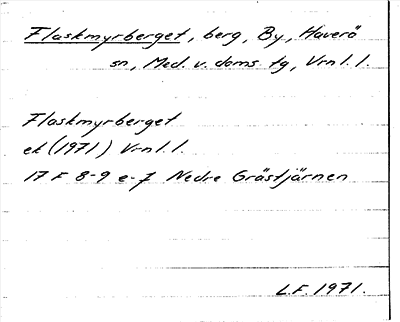 Flaskmyrberget, berg, By, Haverö
sn, Med. v. doms. tg, Vrnl. l.
Flaskmyrberget
ek (1971) Vrnl. l.
17 F 8-9 e-f Nedre Gråstjärnen
L.F. 1971.